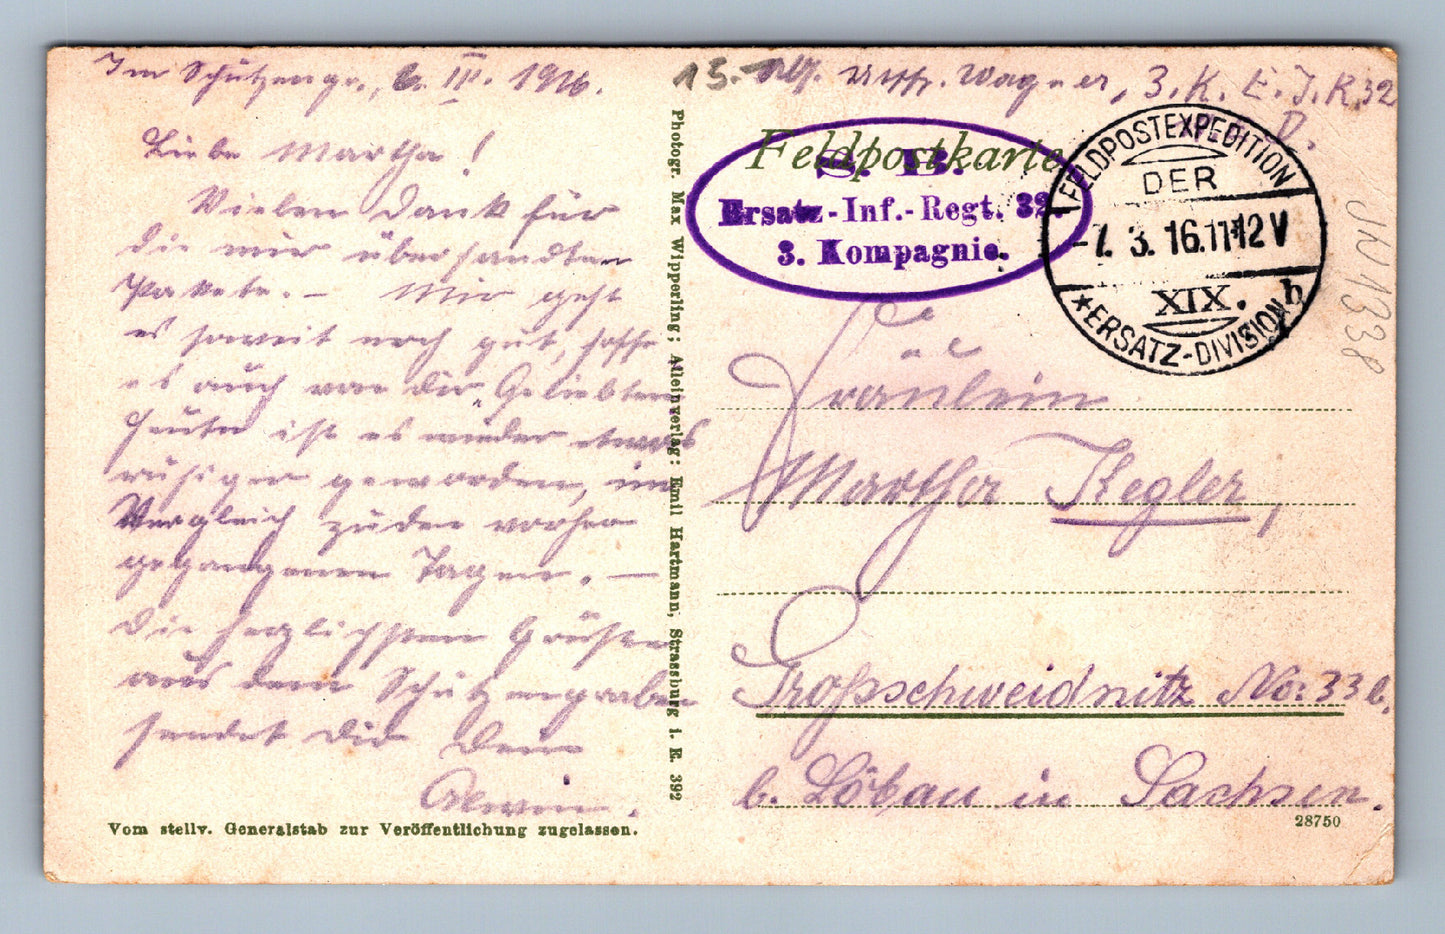 Im Schützengr., 6. III. 1916.
Liebe Martha!
Vielen Dank für
die mir übersandten
Pakete. – Mir geht
es soweit noch gut, hoffe
es auch von Dir, Geliebte
Heute ist es wieder etwas
ruhiger geworden, im
Vergleich zu den vorher
gegangenen Tagen. –
Die herzlichsten Grüße
aus dem Schützengraben
sendet Dir Dein
Erwin.
Vom stellv. Generalstab zur Veröffentlichung zugelassen.
Photogr. Max Wipperling; Alleinverlag: Emil Hartmann, Strassburg i. E. 392
13. Uffz. Wagner, 3. K. E. J. R. 32
D.
Feldpostkarte
S. B.
Ersatz-Inf.-Regt. 32.
3. Kompagnie.
FELDPOSTEXPEDITION
DER
-7. 3. 16. 11-12 V
XIX. b
* ERSATZ-DIVISION
Fräulein
Martha Kegler,
Großschweidnitz No: 33 b.
b. Löbau in Sachsen.
28750
JN1338